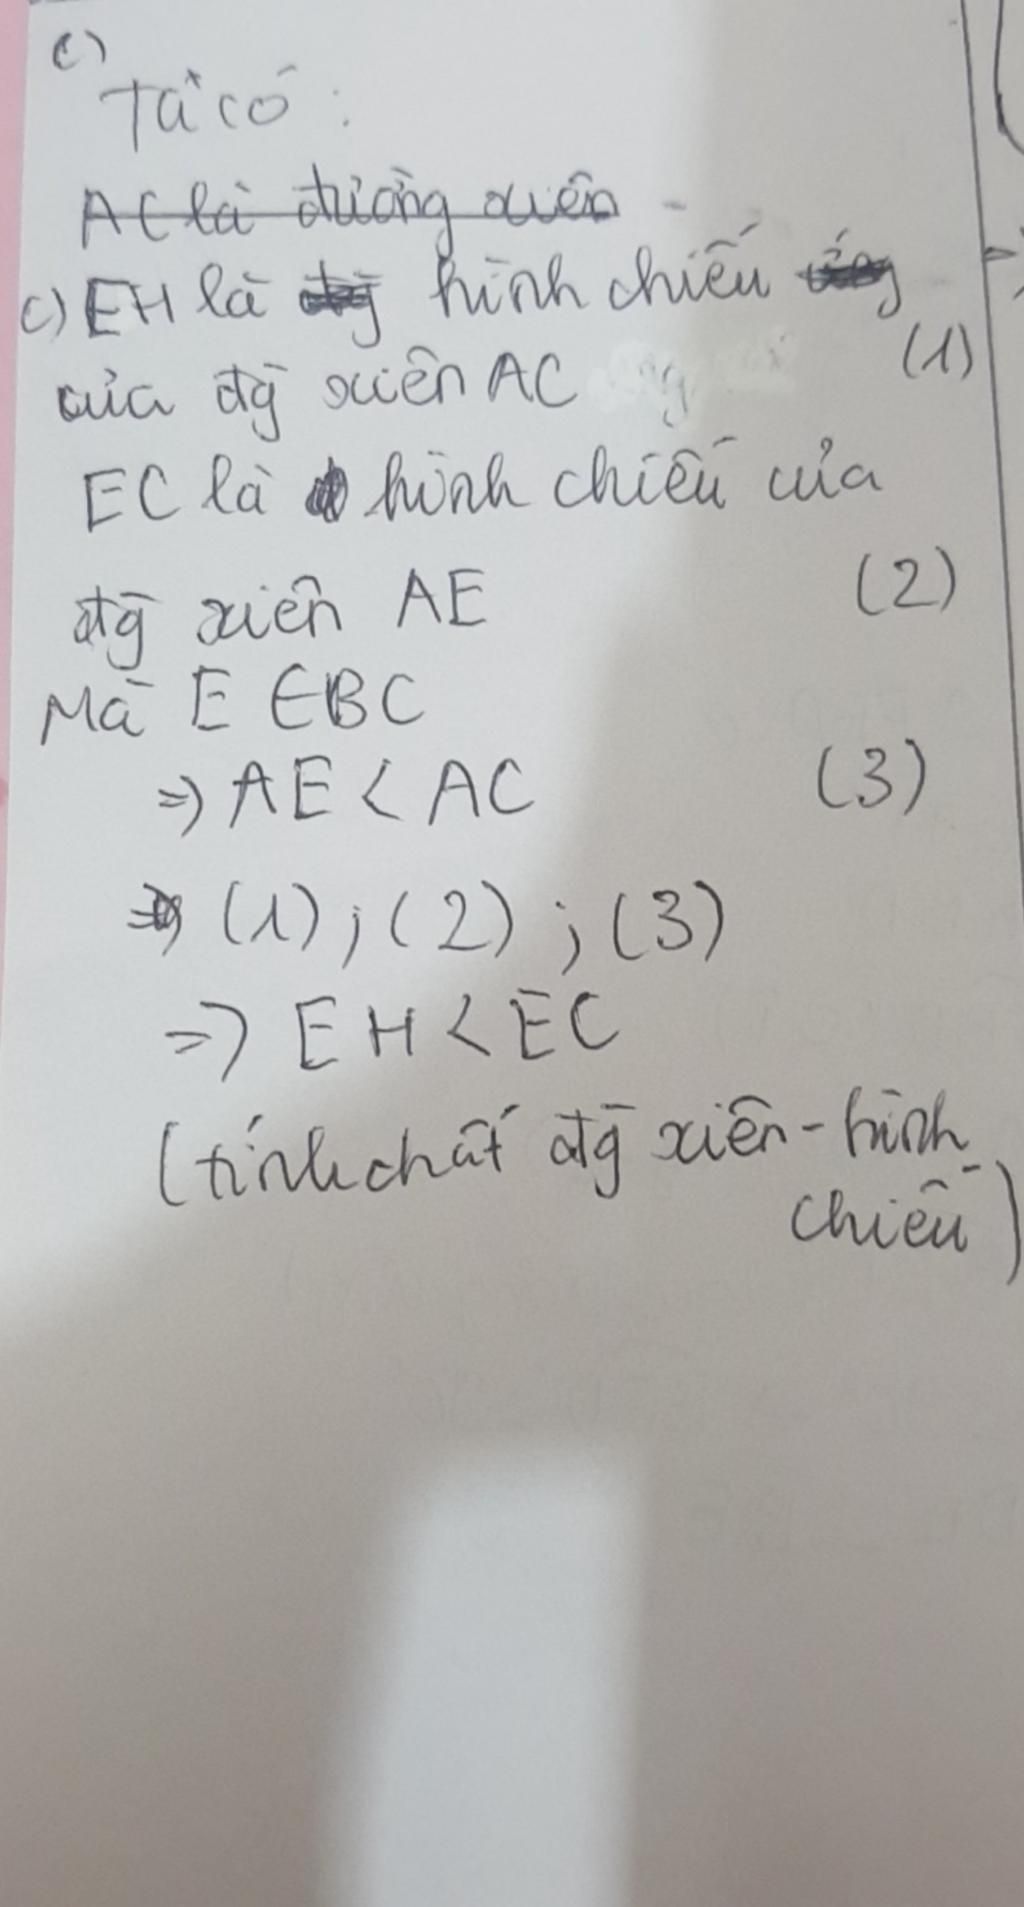 c)
Ta có:
AC là đường xiên
c) EH là hình chiếu
của đg xiên AC (1)
EC là hình chiếu của
đg xiên AE (2)
Mà E ∈ BC
=> AE < AC (3)
(1); (2); (3)
=> EH < EC
(tính chất đg xiên - hình
chiếu)